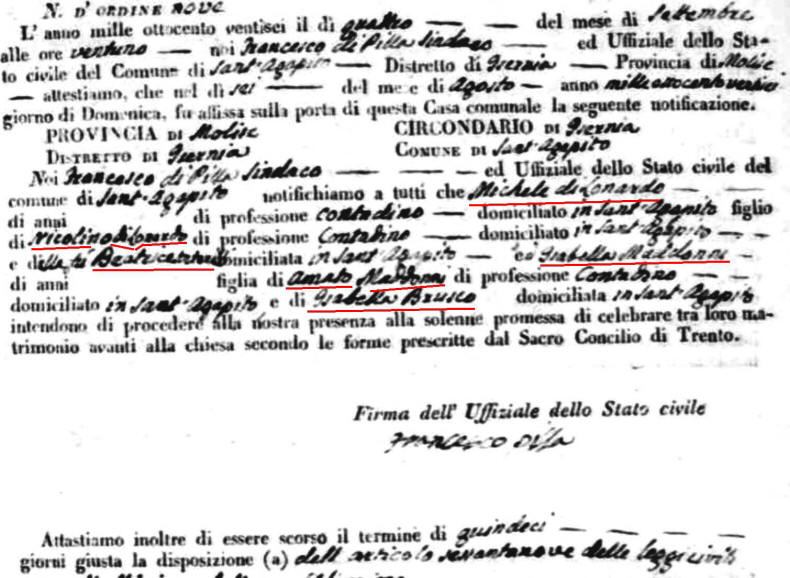 N. D'ORDINE nove
L'anno mille ottocento ventisei il dì quattro — del mese di Settembre
alle ore ventuno — noi Francesco di Pilla Sindaco — ed Uffiziale dello Sta-
to civile del Comune di Sant'Agapito — Distretto di Isernia — Provincia di Molise
— attestiamo, che nel dì sei — del mese di Agosto — anno mille ottocento ventisei
giorno di Domenica, fu affissa sulla porta di questa Casa comunale la seguente notificazione.
PROVINCIA DI Molise CIRCONDARIO DI Isernia
DISTRETTO DI Isernia COMUNE DI Sant'Agapito
Noi Francesco di Pilla Sindaco — ed Uffiziale dello Stato civile del
comune di Sant'Agapito notifichiamo a tutti che Michele di Lonardo —
di anni di professione contadino — domiciliato in Sant'Agapito figlio
di Nicolino di Lonardo di professione Contadino — domiciliato in Sant'Agapito —
e della fu Beatrice domiciliata in Sant'Agapito — ed Isabella Maddonni
di anni figlia di Amato Maddonni di professione Contadino —
domiciliato in Sant'Agapito e di Isabella Brusco domiciliata in Sant'Agapito
intendono di procedere alla nostra presenza alla solenne promessa di celebrare tra loro ma-
trimonio avanti alla chiesa secondo le forme prescritte dal Sacro Concilio di Trento.
Firma dell' Uffiziale dello Stato civile
Francesco Pilla
Attastiamo inoltre di essere scorso il termine di quindeci —
giorni giusta la disposizione (a) dell'articolo sessantanove delle leggi civili